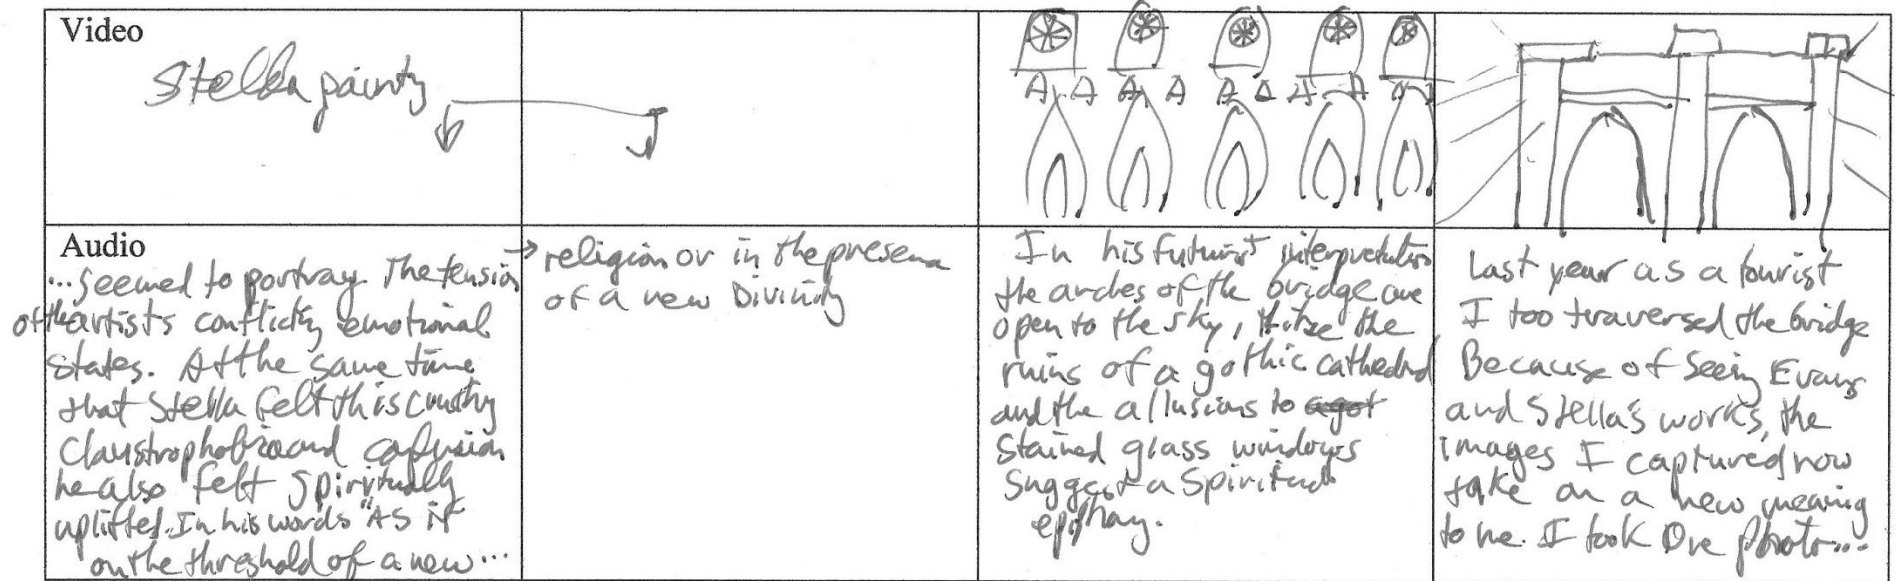 Video
Stella painty
Audio
...seemed to portray the tension
of the artists conflicting emotional
states. At the same time
that Stella felt this crushing
claustrophobia and confusion
he also felt spiritually
uplifted. In his words "As if
on the threshold of a new...
→ religion or in the presence
of a new Divinity
In his futurist interpretation
the arches of the bridge are
open to the sky, like the
ruins of a gothic cathedral
and the allusions to a got
stained glass windows
suggest a spiritual
epiphany.
Last year as a tourist
I too traversed the bridge
Because of seeing Evans
and Stella's works, the
images I captured now
take on a new meaning
to me. I took one photo...